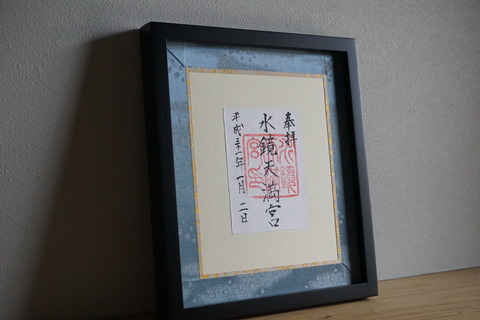 奉拝
水鏡天満宮
平成三十一年一月二日